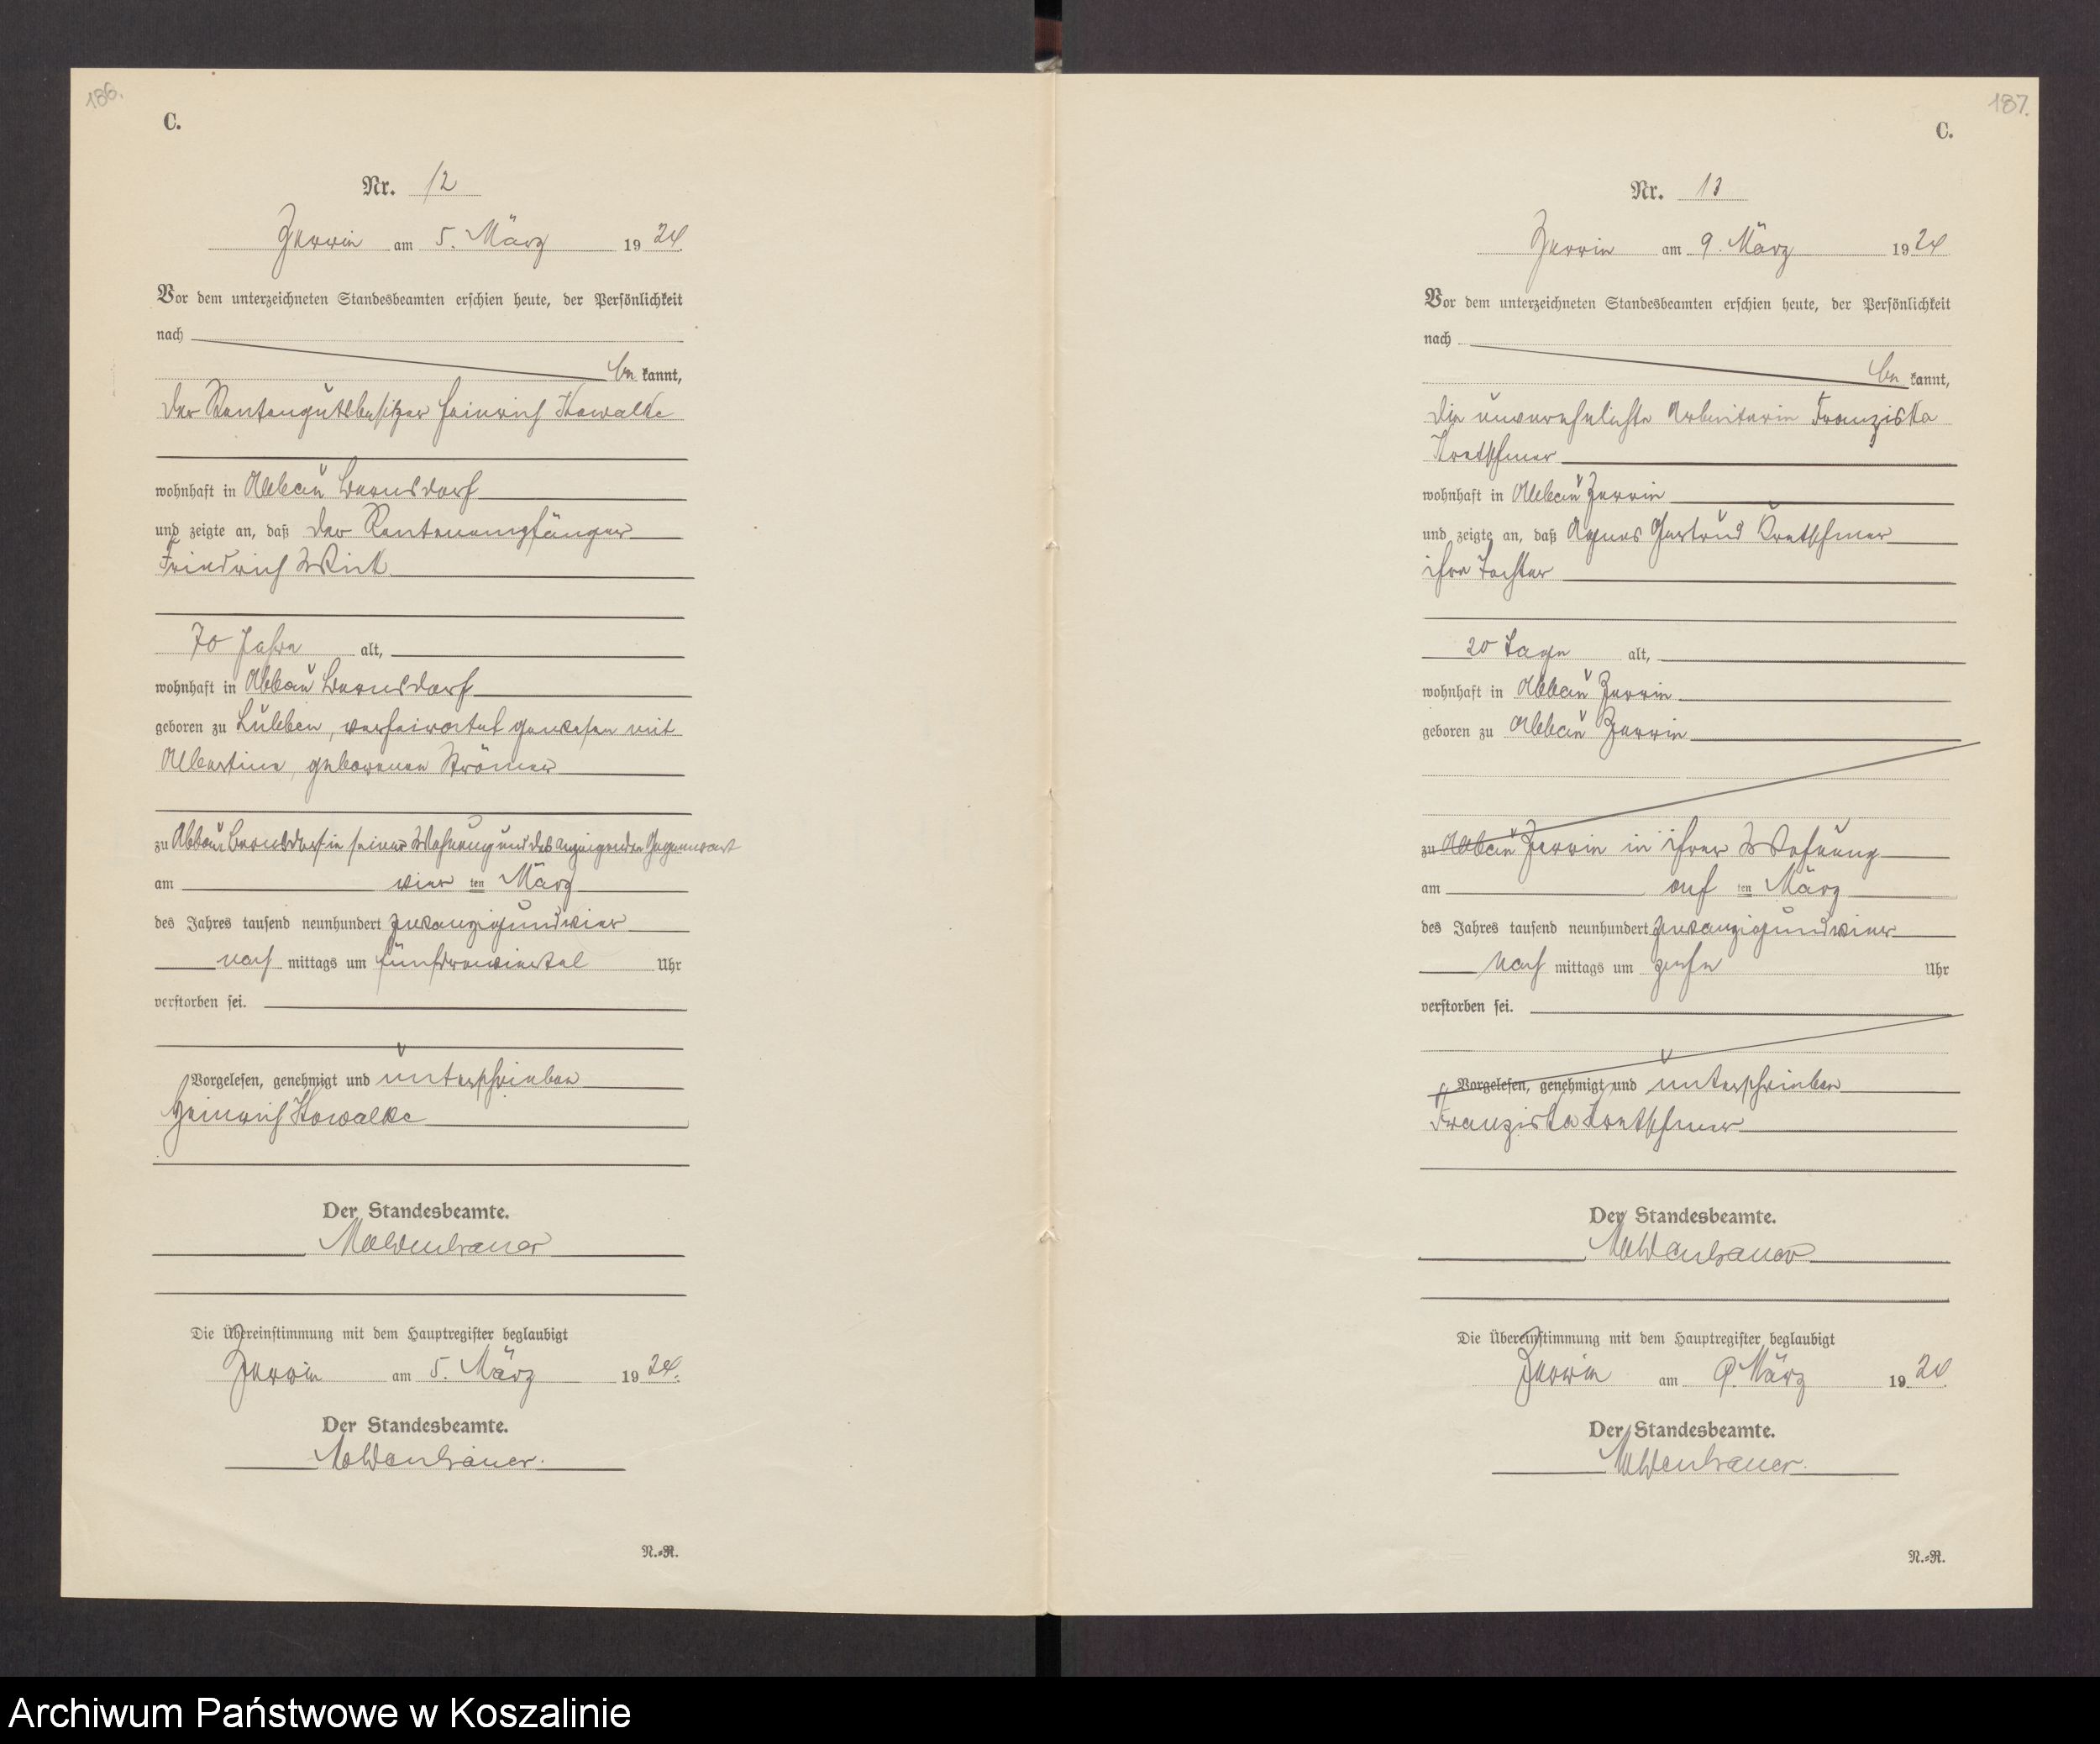 186.
C.
Nr. 12
Zerrin am 5. März 1924.
Vor dem unterzeichneten Standesbeamten erschien heute, der Persönlichkeit
nach
be kannt,
der Rentengutsbesitzer Heinrich Kowalke
wohnhaft in Abbau Bernsdorf
und zeigte an, daß der Rentenempfänger
Friedrich Wink
70 Jahre alt,
wohnhaft in Abbau Bernsdorf
geboren zu Lübben, verheiratet gewesen mit
Albertine, geborenen Krömer
zu Abbau Bernsdorf in seiner Wohnung und des Anzeigenden Gegenwart
am vier ten März
des Jahres tausend neunhundert zwanzigundvier
nach mittags um fünfdreiviertel Uhr
verstorben sei.
Vorgelesen, genehmigt und unterschrieben
Heinrich Kowalke
Der Standesbeamte.
Moldenhauer
Die Übereinstimmung mit dem Hauptregister beglaubigt
Zerrin am 5. März 1924.
Der Standesbeamte.
Moldenhauer.
N.=R.
187.
C.
Nr. 13
Zerrin am 9. März 1924
Vor dem unterzeichneten Standesbeamten erschien heute, der Persönlichkeit
nach
be kannt,
die unverehelichte Arbeiterin Franziska
Kretschmer
wohnhaft in Abbau Zerrin
und zeigte an, daß Agnes Gertrud Kretschmer
ihre Tochter
20 Tage alt,
wohnhaft in Abbau Zerrin
geboren zu Abbau Zerrin
zu Abbau Zerrin in ihrer Wohnung
am acht ten März
des Jahres tausend neunhundert zwanzigundvier
Nach mittags um zehn Uhr
verstorben sei.
Vorgelesen, genehmigt und unterschrieben
Franziska Kretschmer
Der Standesbeamte.
Moldenhauer
Die Übereinstimmung mit dem Hauptregister beglaubigt
Zerrin am 9. März 1924
Der Standesbeamte.
Moldenhauer.
N.=R.
Archiwum Państwowe w Koszalinie